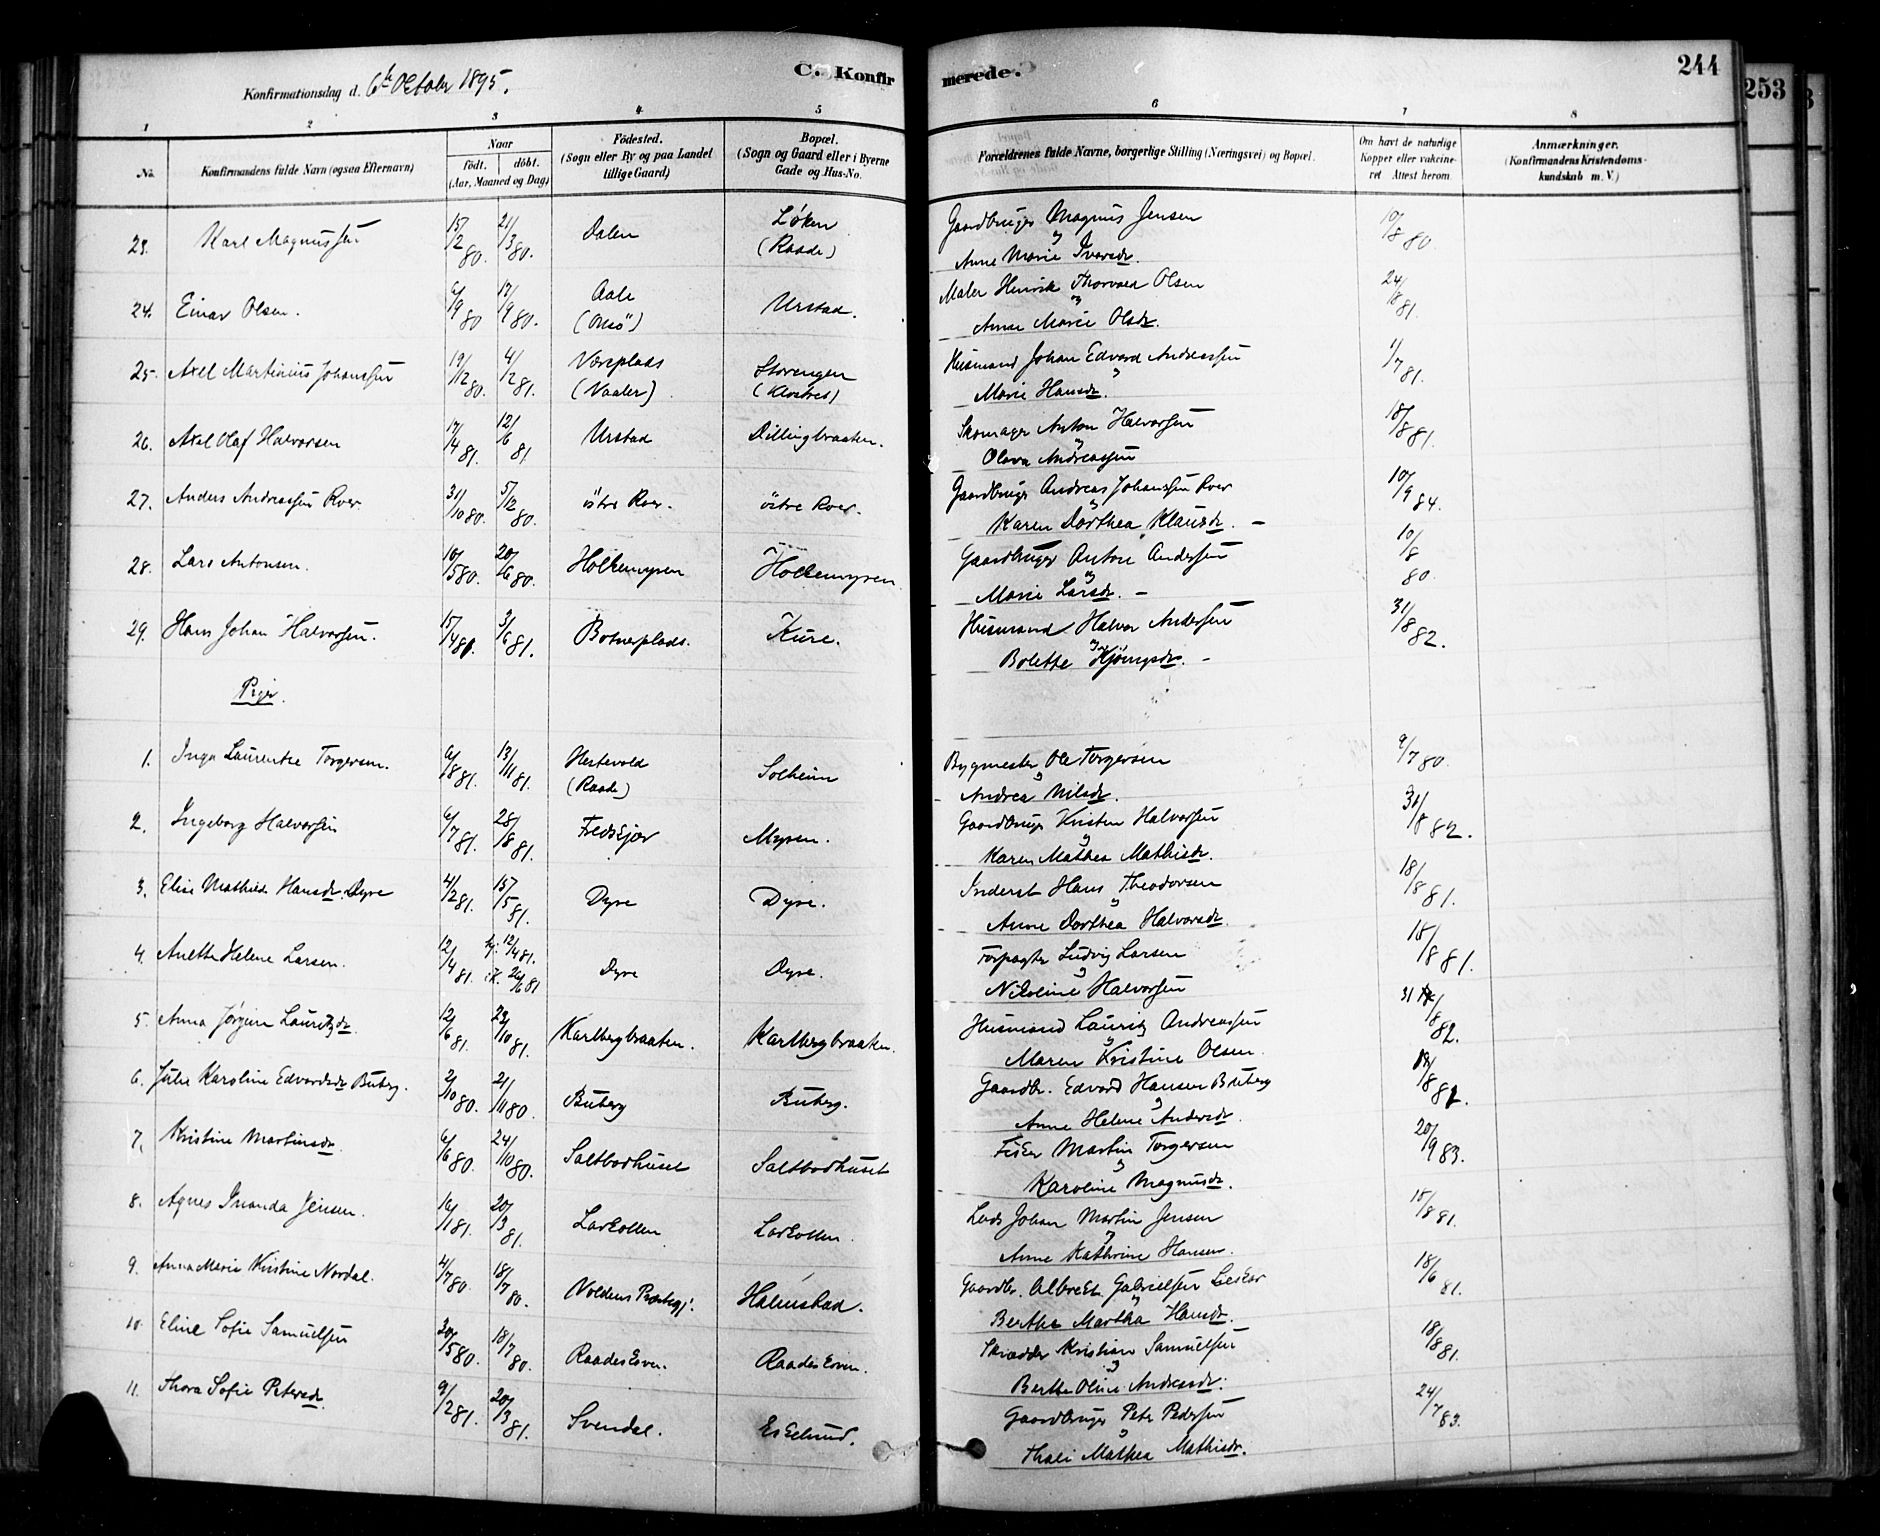 C. Konfirmerede.
244
253
Konfirmationsdag d. 6te October 1895.
1 2 3 4 5 6 7 8
No. Konfirmandens fulde Navn (ogsaa Efternavn) Naar født. døbt. (Aar, Maaned og Dag) Fødested. (Sogn eller By og paa Landet tillige Gaard) Bopæl. (Sogn og Gaard eller i Byerne Gade og Hus-No. Forældrenes fulde Navne, borgerlige Stilling (Næringsvei) og Bopæl. Om havt de naturlige Kopper eller vakcineret Attest herom. Anmærkninger. (Konfirmandens Kristendomskundskab m. V.)
23. Karl Magnussen 15/2 80. 21/3 80. Dalen Løken (Raade) Gaardbruger Magnus Jensen 10/8 80.
Anne Marie Iversdr.
24. Einar Olsen. 6/9 80 17/9 80. Aale (Onsö) Urstad. Maler Henrik Thorvald Olsen 24/8 81.
Anne Marie Olsdr.
25. Axel Martinius Johanssen 19/12 80. 4/2 81. Næsplads (Vaaler) Storengen Husmand Johan Edvard Andreassen 1/7 81.
Marie Hansdr.
26. Axel Olaf Halvorsen 17/4 81. 12/6 81. Urstad Dillingbraaten. Skomager Anton Halvorsen 18/8 81.
Olava Andreassen
27. Anders Andreassen Roer 31/10 80. 5/12 80. östre Roer. östre Roer. Gaardbruger Andreas Johanssen Roer 10/9 84.
Karen Dorthea Klausdr. –
28. Lars Antonsen. 10/5 80. 20/6 80. Holkemyren Holkemyren Gaardbruger Anton Anderssen 10/8 80.
Marie Larsdr. –
29. Hans Johan Halvorsen. 15/4 81. 3/6 81. Botnerplads. Kure. Husmand Halvor Anderssen 31/8 82.
Bolette –
Piger.
1. Inga Laurentse Torgersen. 6/8 81. 13/11 81. Hestevold (Raade) Solheim Bygmester Ole Torgersen 9/7 80.
Andrea Nilsdr.
2. Ingeborg Halvorsen 6/7 81. 28/8 81. Fredskjær Myren. Gaardbruger Kristen Halvorsen 31/8 82.
Karen Mathea Mathisdr.
3. Elise Mathilde Hansdr. Dyre 4/2 81. 15/5 81. Dyre Dyre. Inderst Hans Theodorsen 18/8 81.
Anne Dorthea Halvorsdr.
4. Anette Helene Larsen. 12/4 81. hj. 12/4 81. i K. 26/6 81 Dyre Dyre. Forpagter Ludvig Larsen 18/8 81.
Nikoline Halvorsen
5. Anna Jørgine Lauritzdr. 12/6 81. 23/10 81. Karlbergbraaten. Karlbergbraaten. Husmand Lauritz Andreassen 31/8 82.
Maren Kristine Olsen.
6. Julie Karoline Edvardsdr. Buberg. 2/10 80. 21/11 80. Buberg Buberg. Gaardbr. Edvard Hansen Buberg
Anne Helene Andersdr.
7. Kristine Martinsdr. 6/6 80. 24/10 80. Saltbodhuset Saltbodhuset Fisker Martin Torgersen 20/9 83.
Karoline Magnusdr.
8. Agnes Inanda Jensen. 16/1 81. 20/3 81. Larkollen Larkollen. Lods Johan Martin Jensen 18/8 81.
Anne Kathrine Hansen.
9. Anna Marie Kristine Nordal. 4/7 80. 18/7 80. Noldens Præstegj. Halmstad. Gaardbr. Albrekt Gabrielsen 18/6 81.
Berthe Martha Hansdr.
10. Eline Sofie Samuelsen 30/5 80. 18/7 80. Raadeskoven. Raadeskoven. Skrædder Kristian Samuelsen 18/8 81.
Berthe Oline Andreasdr.
11. Thora Sofie Petersdr. 9/2 81. 20/3 81. Svendal. Eskelund. Gaardbruger Peter Pederssen 24/7 83.
Thale Mathea Mathisdr.